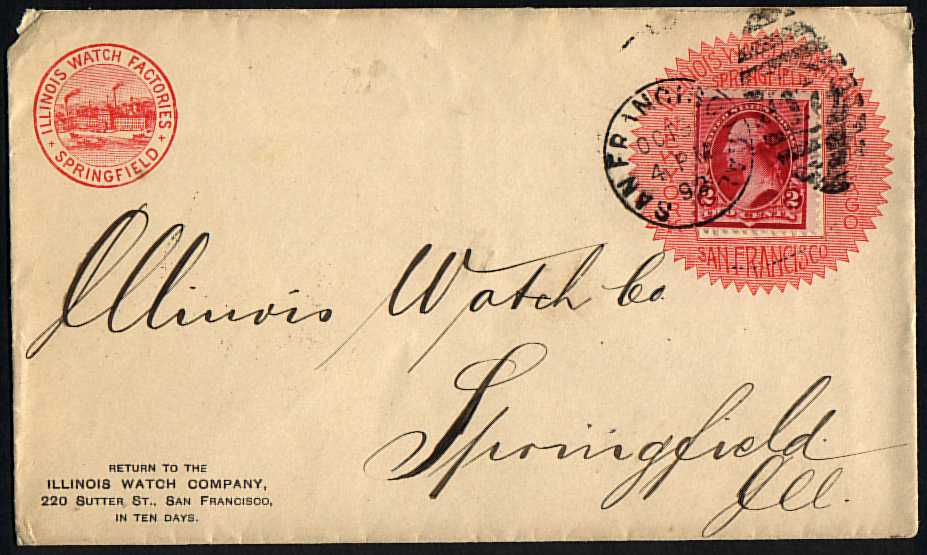 ILLINOIS WATCH FACTORIES
SPRINGFIELD
SPRINGFIELD
SAN FRANCISCO
SAN FRANCISCO
OCT
4 PM
2 2
TWO CENTS
Illinois Watch Co
Springfield
Ill.
RETURN TO THE
ILLINOIS WATCH COMPANY,
220 SUTTER ST., SAN FRANCISCO,
IN TEN DAYS.